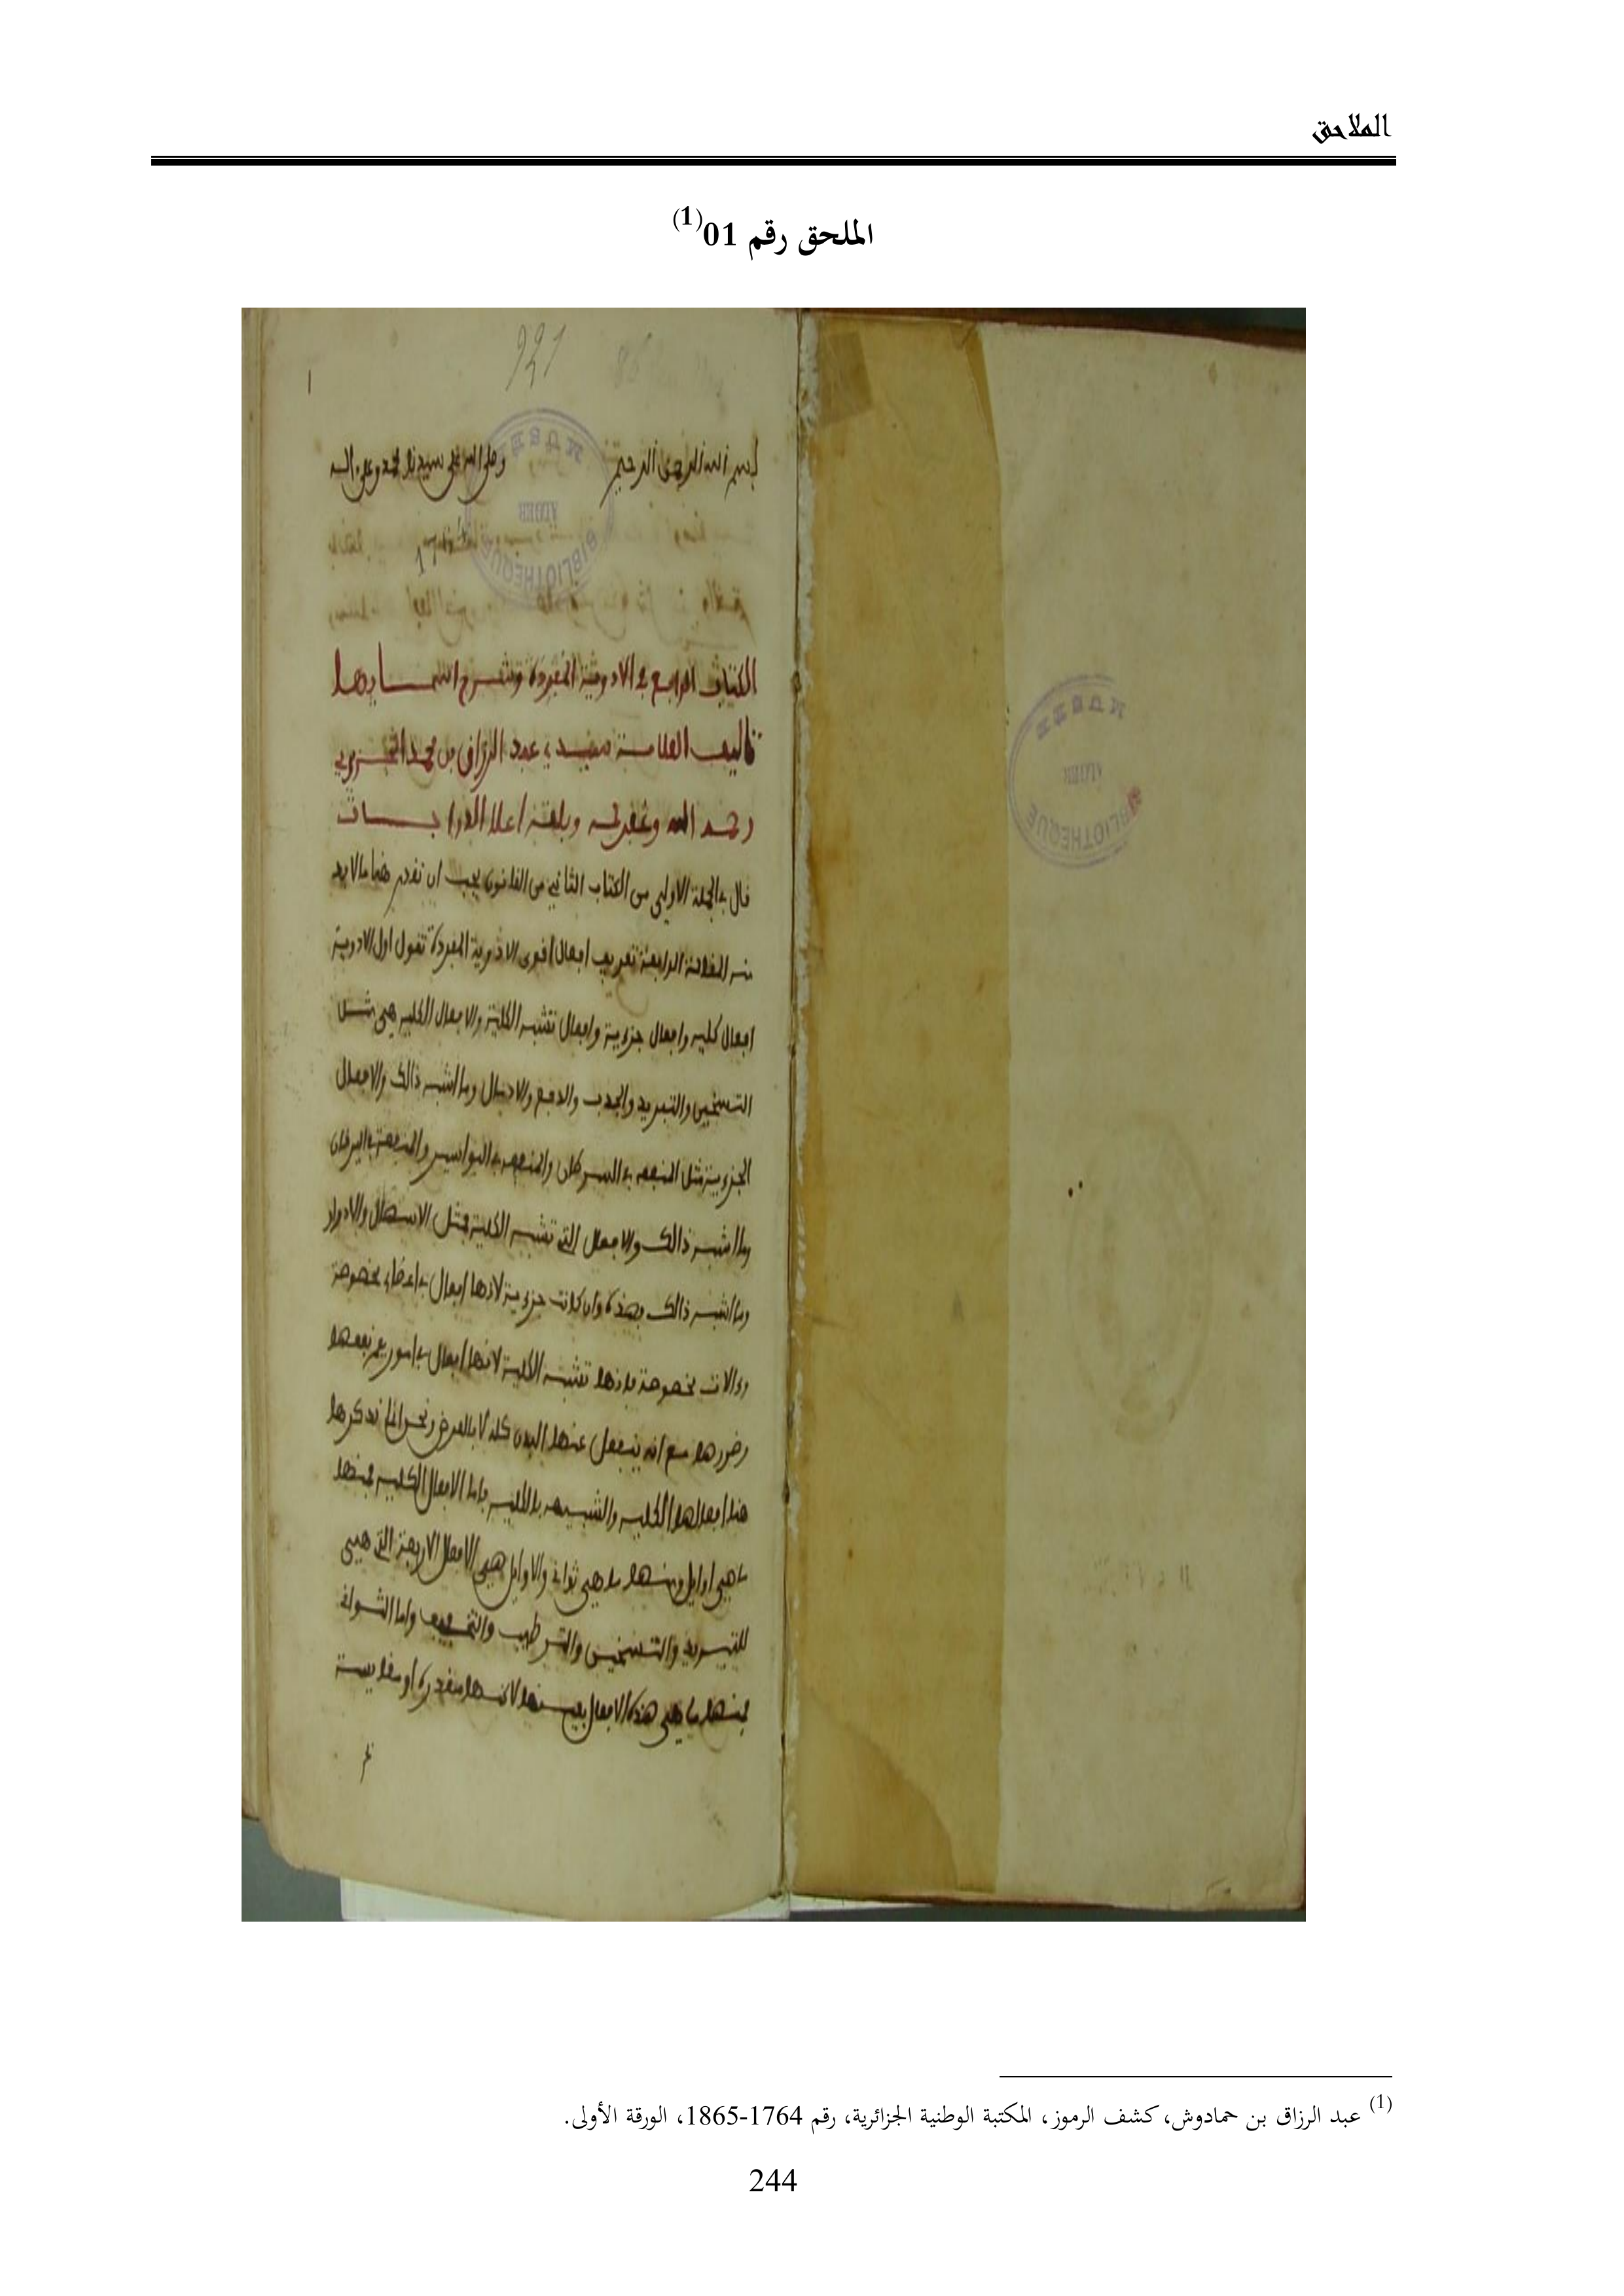 الملاحق
الملحق رقم 01(1)
921
بسم الله الرحمن الرحيم وصلى الله على سيدنا محمد وعلى اله
الكتاب الرابع في الادوية المفردة وشرح اسمايها
تاليف العلامة سيدي عبد الرزاق بن محمد الجزيري
رحمه الله وغفر له وبلغه اعلا الدراجات
قال في الجملة الاولى من الكتاب الثاني من القانون يجب ان نقدم هنا ما لا بد
منه المقالة الرابعة تعريف افعال قوى الادوية المفردة نقول اول الادوية
افعال كليه وافعال جزءية وافعال تشبه الكلية والافعال الكليه هي مثل
التسخين والتبريد والجذب والدفع والادمال وما اشبه ذالك والافعال
الجزءية مثل المنفعه في السرطان والمنفعه في البواسير والمنفعة في اليرقان
وما اشبه ذالك والافعال التي تشبه الكلية مثل الاسهال والادرار
وما اشبه ذالك فهذه وان كانت جزءية لانها افعال في اعضاء مخصوصة
وءالات مخصوصة فانها تشبه الكلية لانها افعال في امور يعم نفعها
وضررها مع انه ينفعل عنها البدن كله لا بالعرض ونحن انما نذكرها
هنا افعالها الكليه والشبيهه بالكليه فاما الافعال الكليه فمنها
ما هي اوايل ومنها ما هي ثوانى والاوايل هي الافعال الاربعة التي هي
التبريد والتسخين والترطيب والتجفيف واما الثوانى
فمنها ما هي هذه الافعال بعينها لاكنها مقدرة او مقايسة
BIBLIOTHEQUE
ALGER
BIBLIOTHEQUE
ALGER
(1) عبد الرزاق بن حمادوش، كشف الرموز، المكتبة الوطنية الجزائرية، رقم 1764-1865، الورقة الأولى.
244